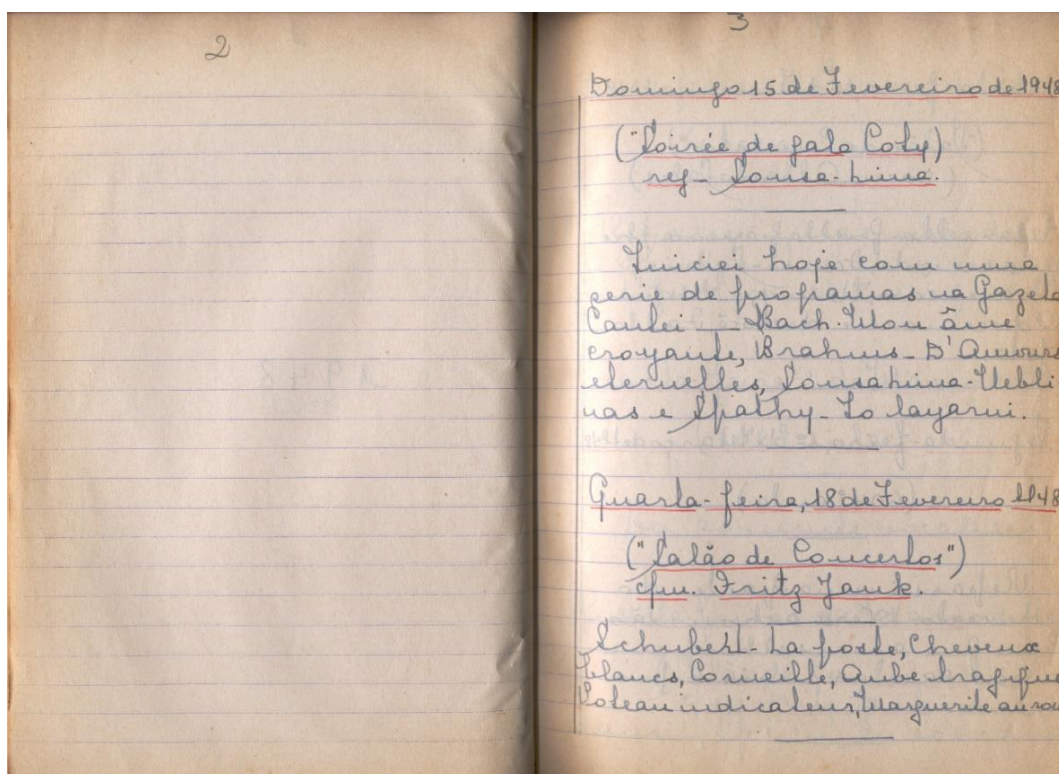 2
3
Domingo 15 de Fevereiro de 1948
("Soirée de gala Coty)
reg- Sousa-Lima.
Iniciei hoje com uma
serie de programas na Gazeta
Cantei — Bach. Mon âme
croyante, Brahms - D'Amours
eternelles, Sousa Lima - Nebli
nas e Spathy - To layarni.
Quarta-feira, 18 de Fevereiro 1948
("Salão de Concertos")
c/m. Fritz Jank.
Schubert - La poste, Cheveux
blancs, Corneille, Aube tragique
Poteau indicateur, Marguerite au rou